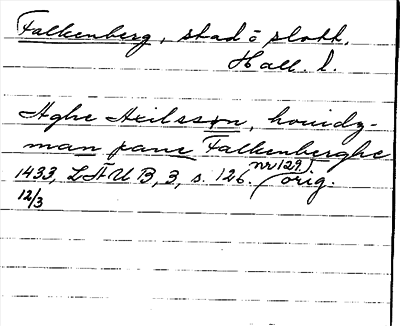 Falkenberg, stad o slott.
Hall. l.
Aghe Axilsson, houidz-
man pane Falkenberghe
1433, LÄUB, 3, s. 126. (nr 129) orig.
12/3